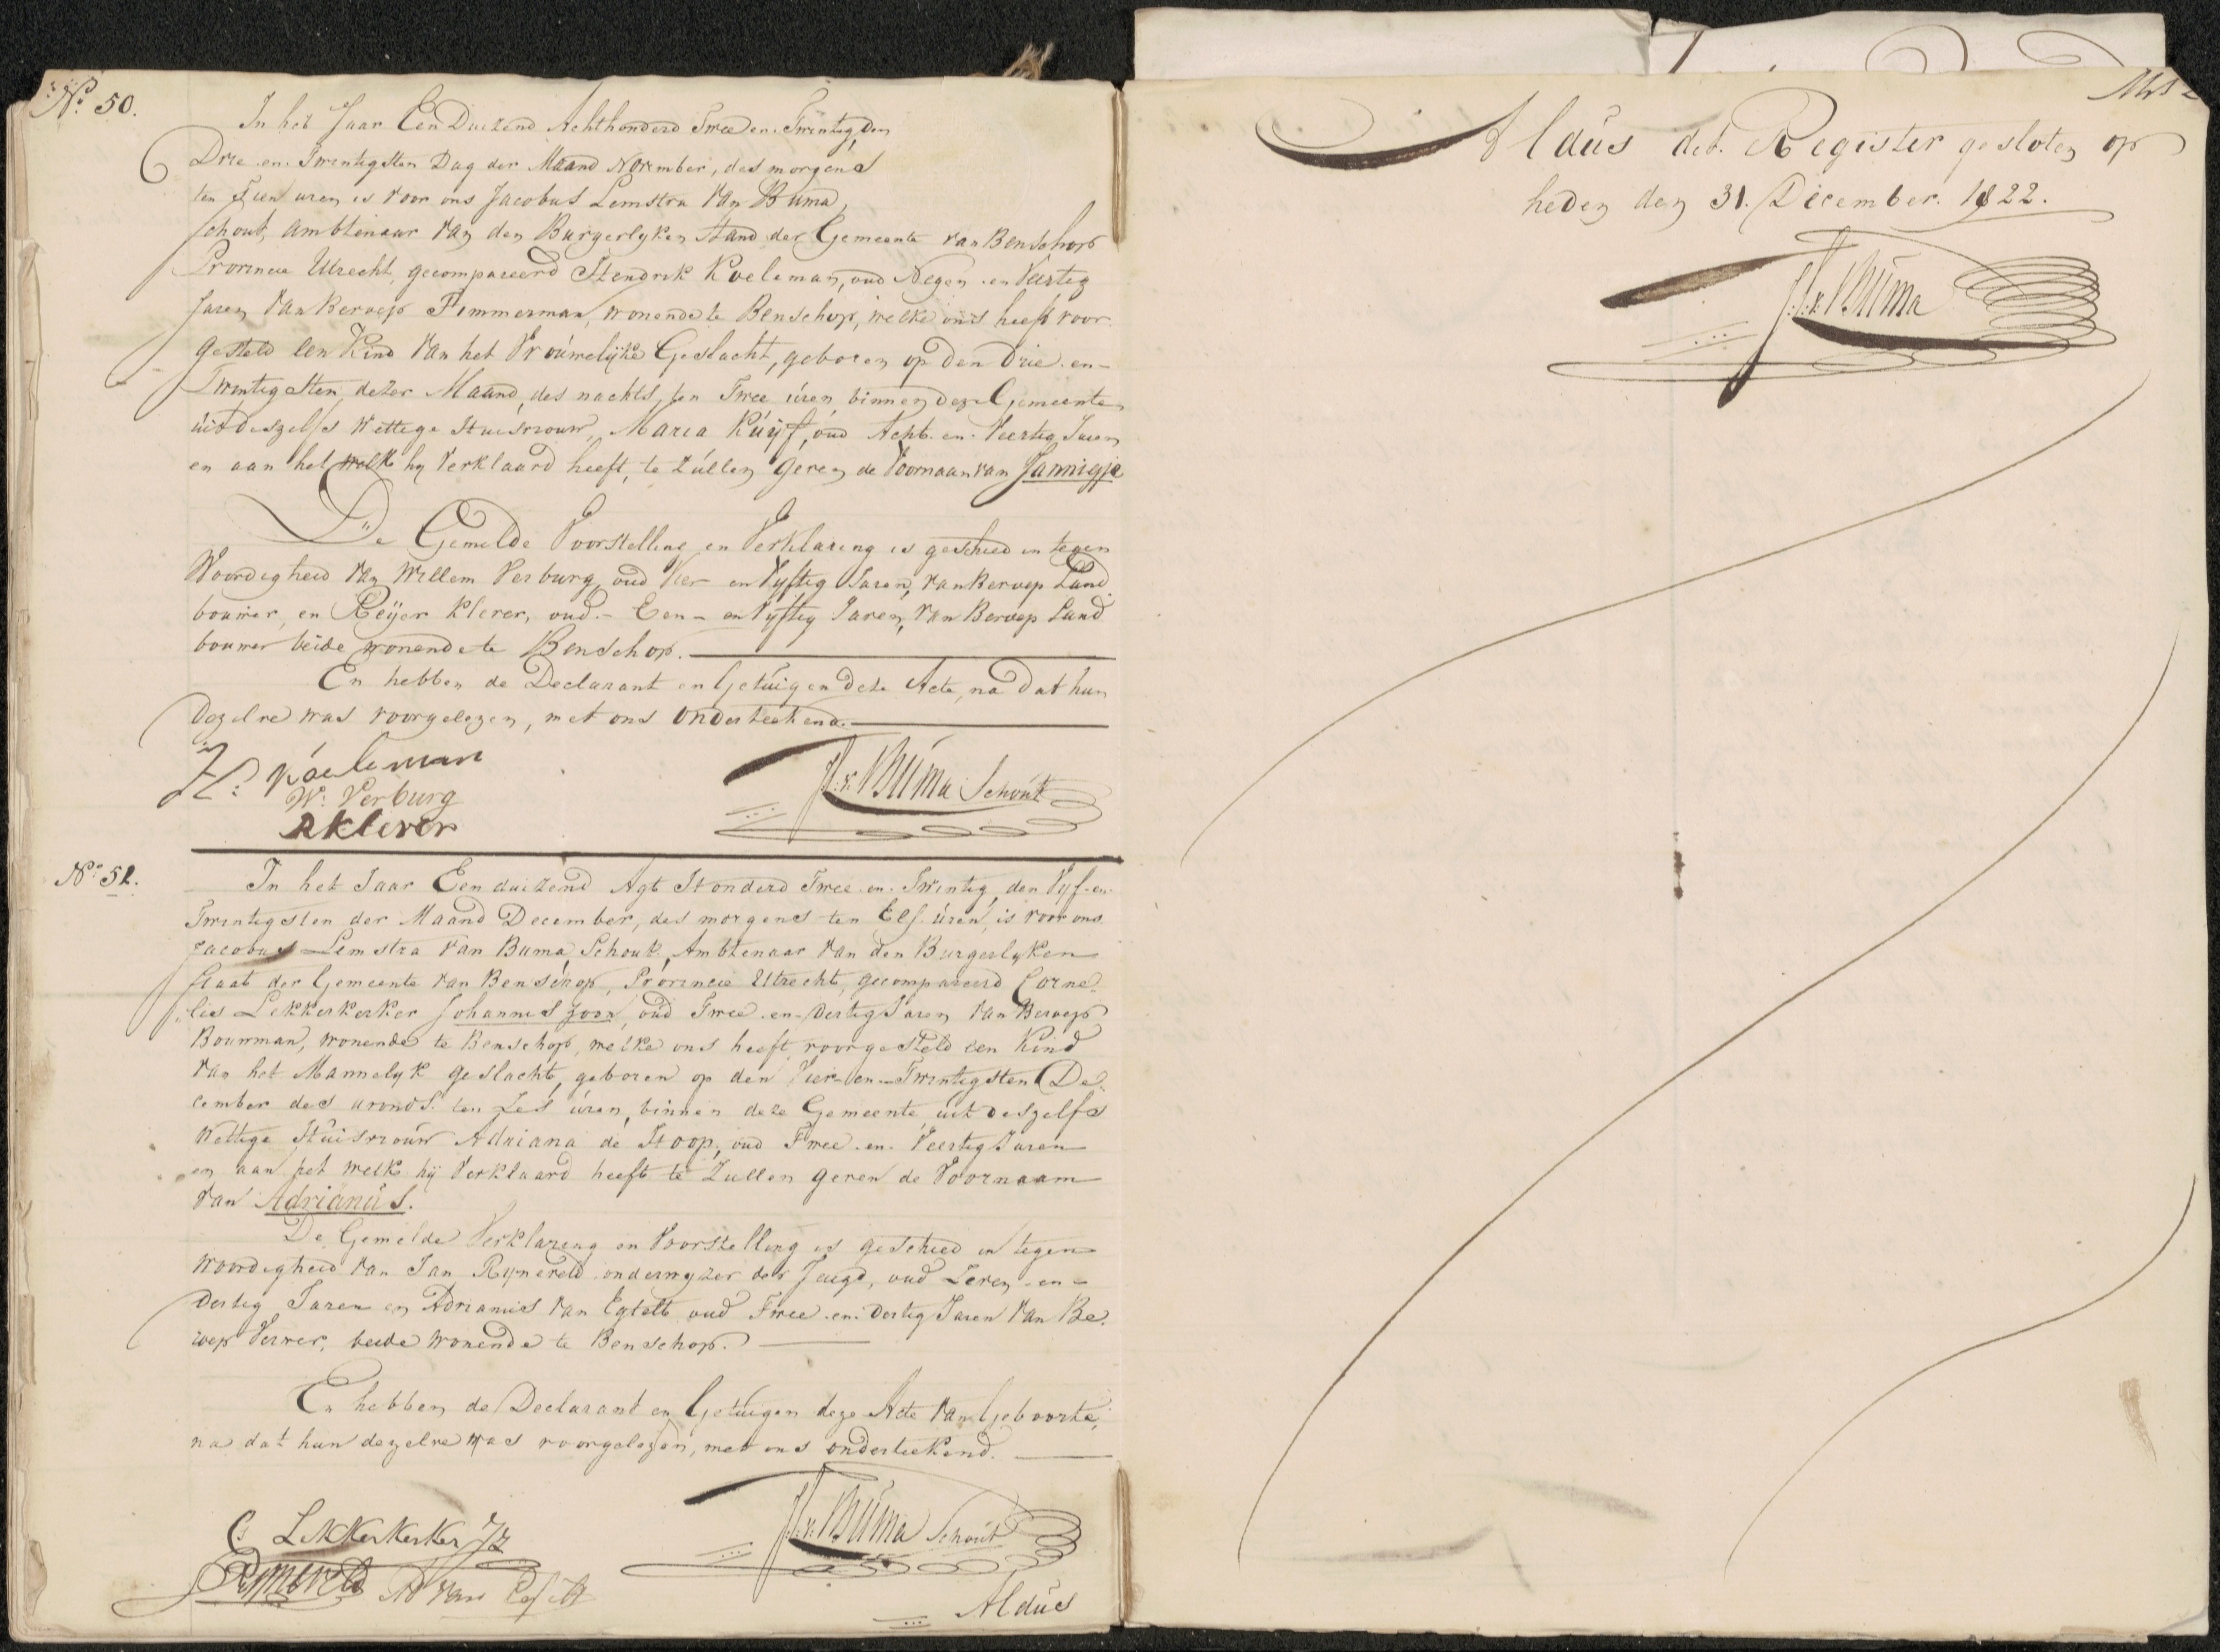 No. 50.
In het Jaar Een Duizend Achthonderd Twee en Twintig, den
Drie en Twintigsten Dag der Maand November, des morgens
ten Tien uren is voor ons Jacobus Lemstra van Buma,
Schout, Ambtenaar van den Burgerlyken Stand der Gemeente van Benschop
Provincie Utrecht, gecompareerd Hendrik Koeleman, oud Negen en Veertig
Jaren van Beroep Timmerman, wonende te Benschop, welke ons heeft voor
gesteld een Kind van het Vrouwelyke Geslacht, geboren op den Drie en
Twintigsten dezer Maand, des nachts ten Twee uren binnen deze Gemeente,
uit deszelfs Wettige Huisvrouw, Maria Kuijf, oud Acht en Veertig Jaren
en aan het welk hy Verklaard heeft, te zullen geven de Voornaam van Jannigje
De Gemelde Voorstelling en Verklaring is geschied in tegen
Woordigheid van Willem Verburg, oud Vier en Vyftig Jaren, van Beroep Land
bouwer, en Reijer Klever, oud - Een - en Vyftig Jaren, van Beroep Land
bouwer beide wonende te Benschop.
En hebben de Declarant en Getuigen deze Acte, na dat hun
dezelve was voorgelezen, met ons onderteekend.
H: Koeleman
W: Verburg
R Klever
J.L.v. Buma Schout
No. 51.
In het Jaar Een duizend Agt Honderd Twee en Twintig, den Vyf en
Twintigsten der Maand December, des morgens ten Elf uren, is voor ons
Jacobus Lemstra van Buma, Schout, Ambtenaar van den Burgerlyken
Staat der Gemeente van Benschop, Provincie Utrecht, gecompareerd Corne
lies Lekkerkerker Johannis zoon, oud Twee en Dertig Jaren van Beroep
Bouwman, wonende te Benschop, welke ons heeft voorgesteld een Kind
van het Mannelyk geslacht, geboren op den Vier en Twintigsten De
cember des avonds ten Zes uren, binnen deze Gemeente, uit deszelfs
Wettige Huisvrouw Adriana de Hoop, oud Twee en Veertig Jaren
en aan het welke hy Verklaard heeft te Zullen geven de Voornaam
van Adrianus.
De Gemelde Verklaring en Voorstelling is geschied in tegen
woordigheid van Jan Ryneveld onderwyzer der Jeugd, oud Zeven en
Dertig Jaren en Adrianus van Egtelt oud Twee en Dertig Jaren van Be
roep Verwer, beide wonende te Benschop.
En hebben de Declarant en Getuigen deze Acte van Geboorte,
na dat hun dezelve was voorgelezen, met ons onderteekend.
C Lekkerkerker Jz
Ryneveld
A van
J.L.v. Buma Schout
Aldus
Aldus dit Register gesloten op
heden den 31. December 1822.
J.L.v. Buma